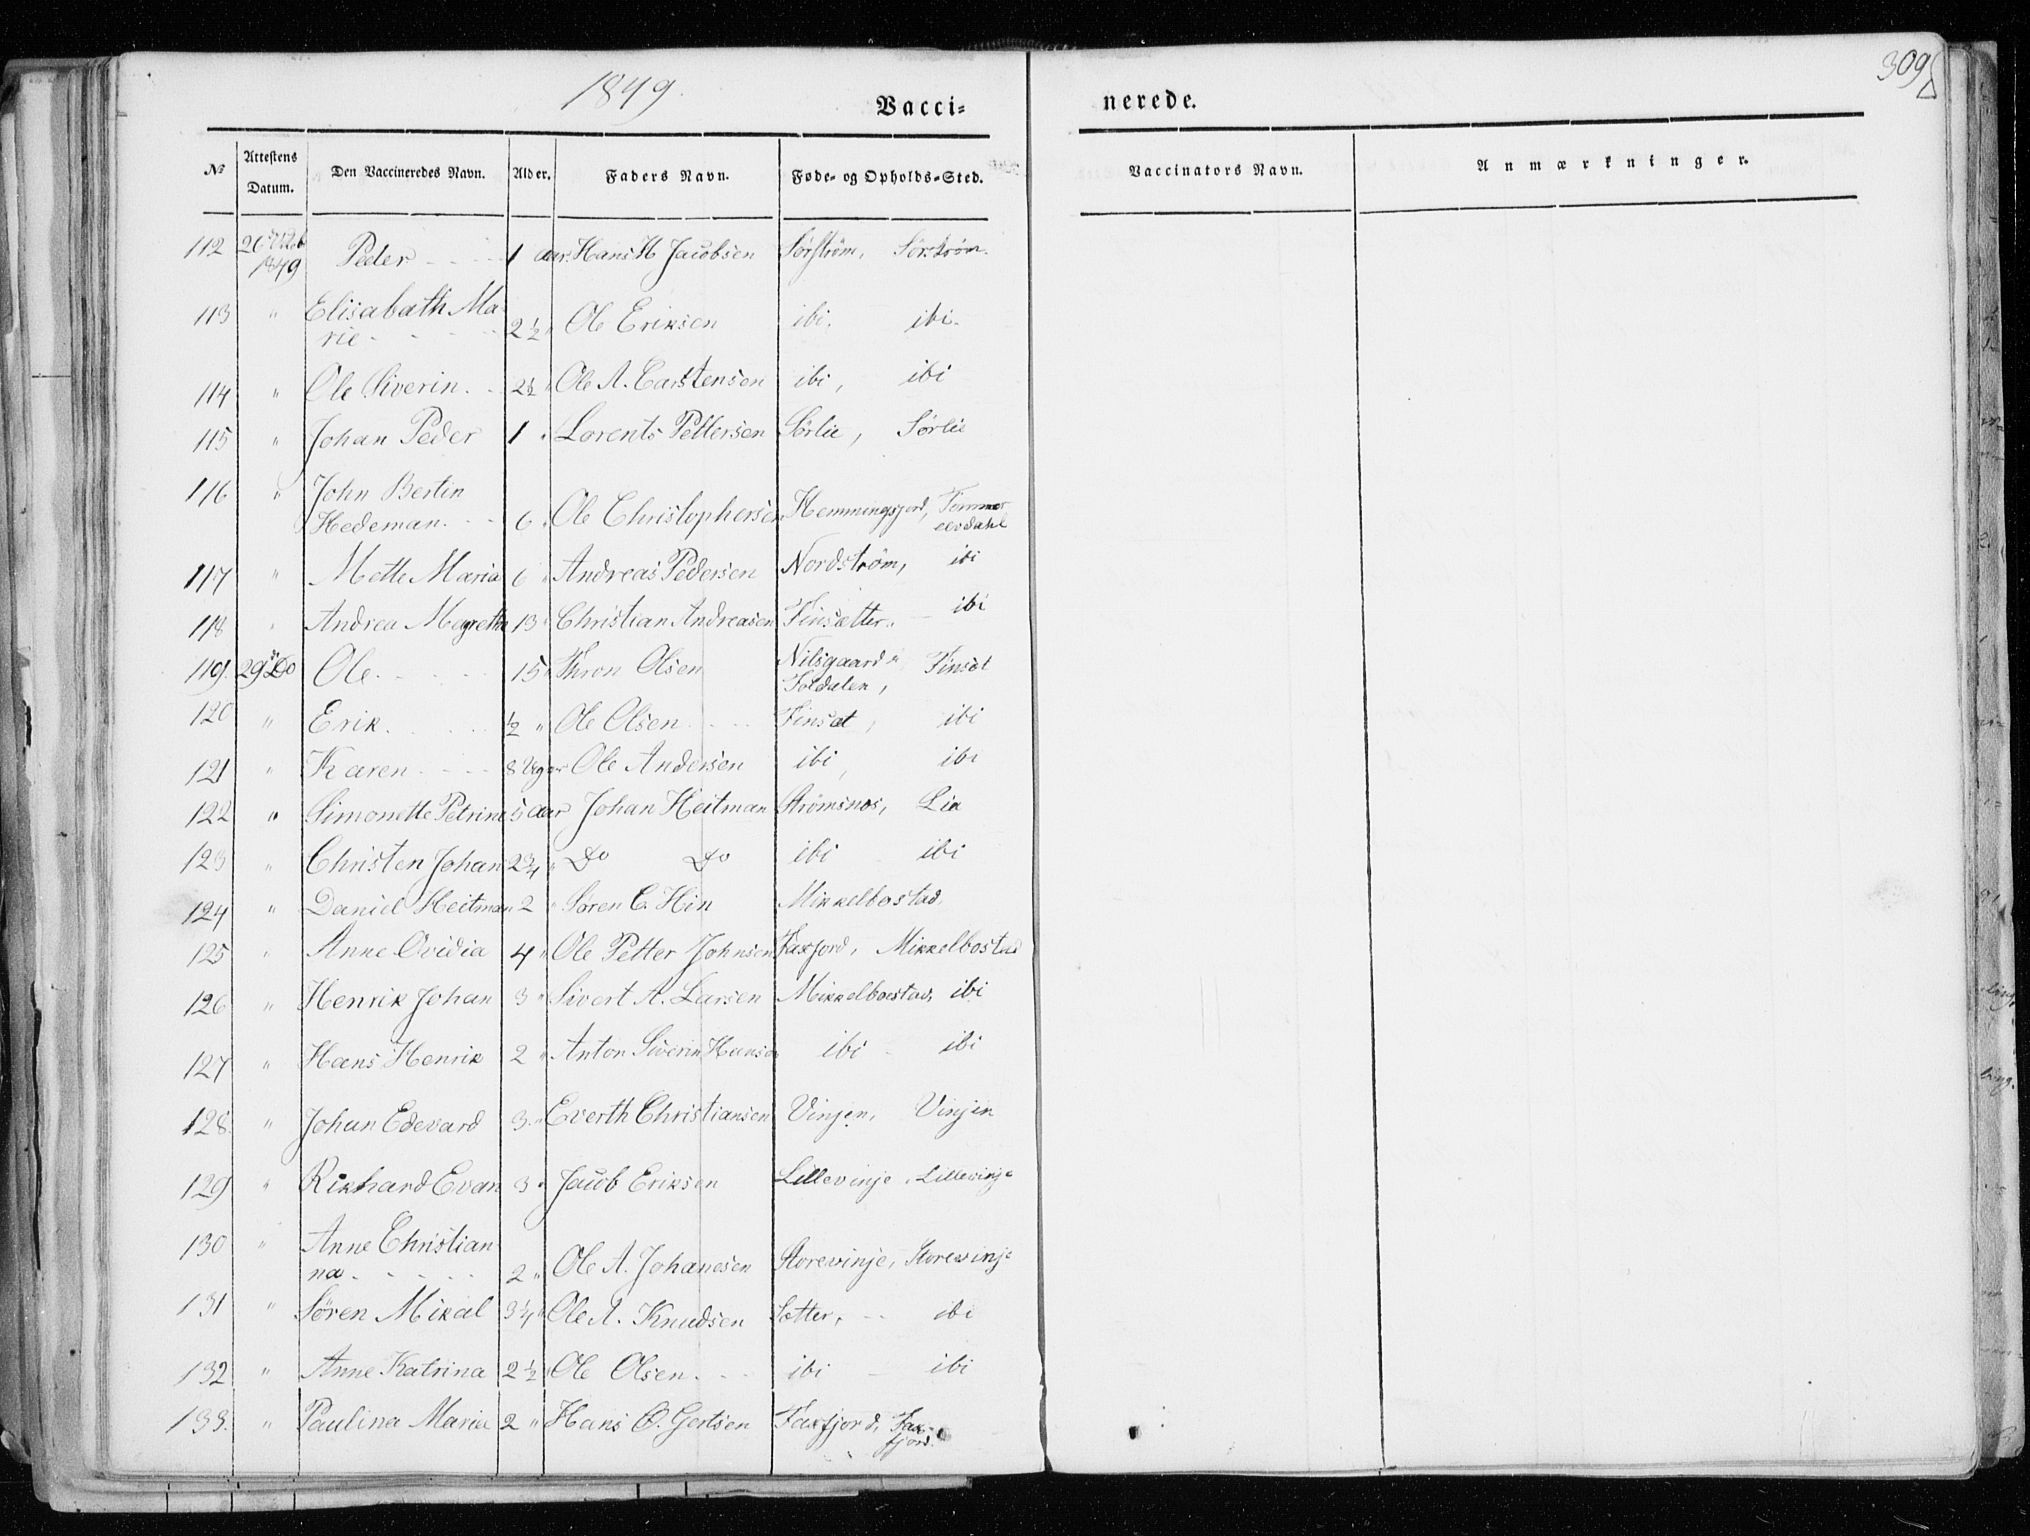 1849.
309
Vacci=
nerede.
No
Attestens Datum.
Den Vaccineredes Navn.
Alder.
Faders Navn.
Føde- og Opholds-Sted.
Vaccinators Navn.
Anmærkninger.
112 1849 Peder 1 aar. Hans H Jacobsen Sørstrøm, Sørstrøm.
113 " Elisabath Ma
rie 2½ " Ole Eriksen ibi. ibi.
114 " Ole Siverin 2½ " Ole A. Carstensen ibi, ibi
115 " Johan Peder 1 " Lorents Pettersen Sørlie, Sørlie
116 " John Bertin
Hedeman. 6 " Ole Christophersen Hemmingsjord, Tømmer
elvdahl
117 " Mette Maria 6 " Andreas Pedersen Nordstrøm, ibi
118 " Andrea Magretha 13 " Christian Andreasen Finsætter. ibi
119. 29 Do Ole 15 " Thron Olsen Nilsgaard
Soldalen, Finsæt
120 " Erik ½ " Ole Olsen Finsæt, ibi
121 " Karen 8 Uger Ole Andersen ibi, ibi
122 " Simonette Petrine 5 aar Johan Heitman Strømsnæs, Lia
123 " Christen Johan 2¾ " Do Do ibi ibi
124 " Daniel Heitman 2 " Søren C. Hin Mikkelbostad.
125 " Anne Ovidia 4 " Ole Petter Johnsen Faxfjord, Mikkelbostad
126 " Henrik Johan 3 " Sivert A. Larsen Mikkelboestad, ibi
127 " Hans Henrik 2 " Anton Siverin Hansen ibi ibi
128. " Johan Edevard 3. " Everth Christiansen Vinjen, Vinjen
129 " Rikhard Evan 3 " Jacob Eriksen Lillevinje, Lillevinje
130 " Anne Christian
na 2 " Ole A. Johanesen Storevinje, Storevinje
131 " Søren Mikal 3¼ " Ole A. Knudsen Sætter, ibi
132 " Anne Katrina 2½ Ole Olsen. ibi ibi
133. " Paulina Maria 2 " Hans O. Gertsen Faxfjord, Fax-
fjord.